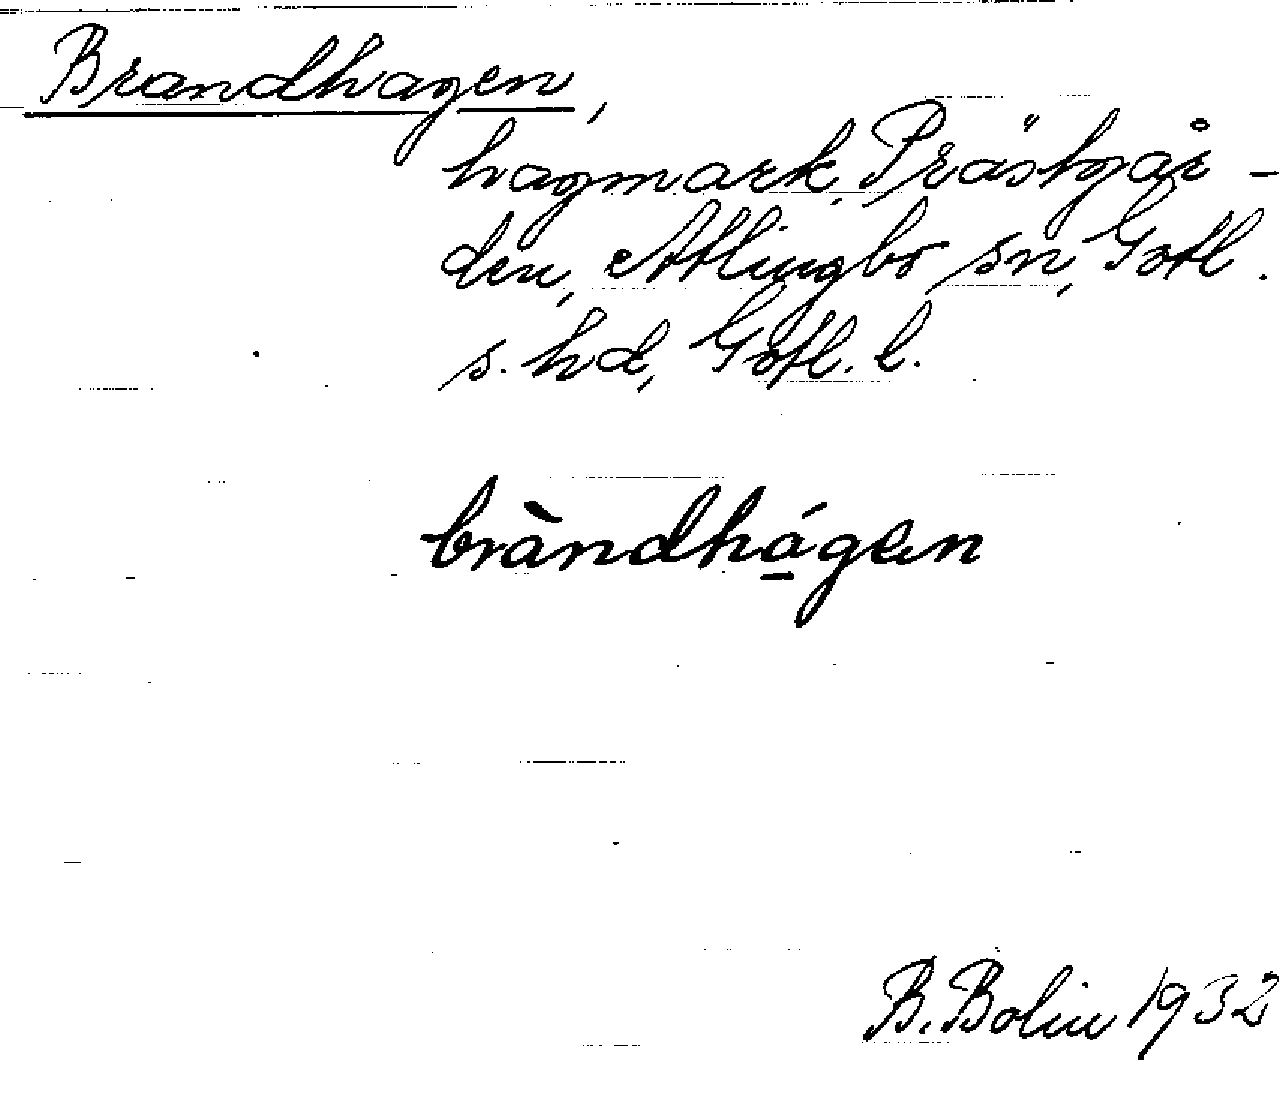 Brandhagen,
hagmark, Prästgår-
den, Atlingbo sn, Gotl.
s. hd, Gotl. l.
bràndhá̱gan
B. Bolin 1932